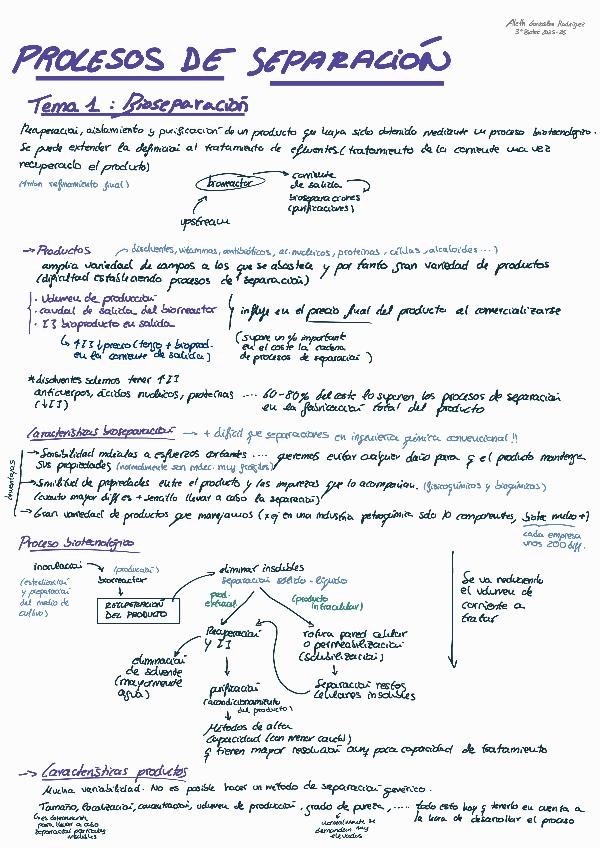 Aleth González Rodríguez
3º Biotec 2025-26
PROCESOS DE SEPARACIÓN
Tema 1: Bioseparación
Recuperación, aislamiento y purificación de un producto que haya sido obtenido mediante un proceso biotecnológico.
Se puede extender la definición al tratamiento de efluentes (tratamiento de la corriente una vez
recuperado el producto)
refinamiento final)
bioreactor
corriente
de salida
bioseparaciones
(purificaciones)
upstream
→ Productos
disolventes, vitaminas, antibióticos, ac. nucleicos, proteínas, células, alcaloides ...)
amplia variedad de campos a los que se abastece y por tanto gran variedad de productos
(dificultad estableciendo procesos de separación)
· Volumen de producción
· caudal de salida del biorreactor
· [] bioproducto en salida
influye en el precio final del producto al comercializarse
↑[] ↓precio (tengo + bioprod.
en la corriente de salida)
(supone un % importante
en el coste la cadena
de procesos de separación)
*disolventes solemos tener ↑[]
anticuerpos, ácidos nucleicos, proteínas .... 60-80% del coste lo suponen los procesos de separación
(↓[])
en la fabricación total del producto
Características bioseparación → + difícil que separaciones en ingeniería química convencional!!
→ Sensibilidad moléculas a esfuerzos cortantes .... queremos evitar cualquier daño para q el producto mantenga
sus propiedades (normalmente son molec. muy frágiles)
→ Similitud de propiedades entre el producto y las impurezas que lo acompañan. (fisicoquímicos y bioquímicos)
(cuanto mayor dif es + sencillo llevar a cabo la separación)
→ Gran variedad de productos que manejamos (x ej en una industria petroquímica solo 10 componentes, biotec mucho +)
cada empresa
unos 200 dif.
Proceso biotecnológico
inoculación
(producción)
biorreactor
(esterilización
y preparación
del medio de
cultivo)
RECUPERACIÓN
DEL PRODUCTO
eliminar insolubles
separación sólido-líquido
prod.
extracel
(producto
intracelular)
Recuperación
y []
rotura pared celular
o permeabilización
(solubilización)
Se va reduciendo
el volumen de
corriente a
tratar
eliminación
de solvente
(mayormente
agua)
purificación
(acondicionamiento
del producto)
Separación restos
celulares insolubles
Métodos de alta
capacidad (con menor caudal)
q tienen mayor resolución aunq poca capacidad de tratamiento
→ Características productos
Mucha variabilidad. No es posible hacer un método de separación genérico.
Tamaño, localización, concentración, volumen de producción, grado de pureza, ..... todo esto hay q tenerlo en cuenta a
la hora de desarrollar el proceso
para llevar a cabo
normalmente se
demandan muy
elevados